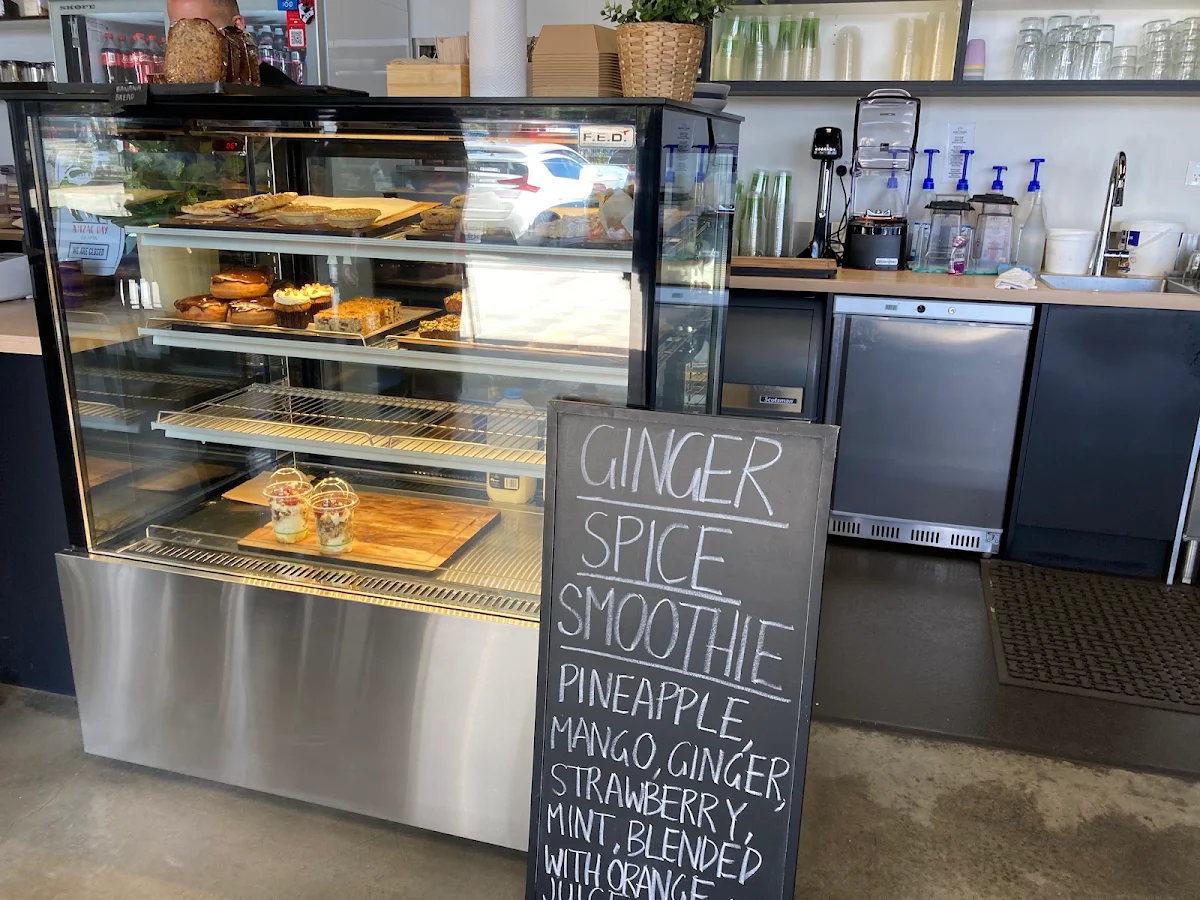 SKOPE
BANANA
BREAD
F.E.D
ANZAC DAY
WE ARE CLOSED
Scotsman
GINGER
SPICE
SMOOTHIE
PINEAPPLE,
MANGO, GINGER,
STRAWBERRY,
MINT, BLENDED
WITH ORANGE
JUICE